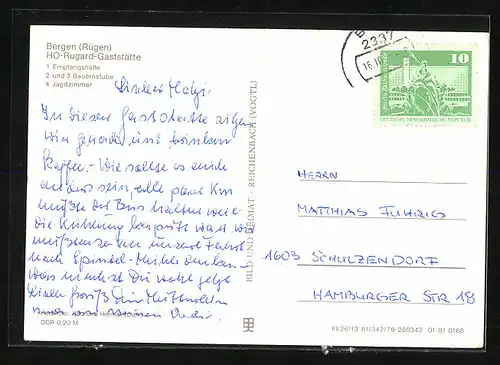 Bergen (Rügen)
HO-Rugard-Gaststätte
1 Empfangshalle
2 und 3 Bauernstube
4 Jagdzimmer
Lieber Matzi.
In dieser Gaststätte sitzen
wir gerade und trinken
Kaffee. - Wie sollte es auch
anders sein, alle paar Km
mußte der Bus halten weil
die Kühlung kaputt war wir
mußten an unsere Fahrt
nach denken -
Was machst Du wohl jetzt
Lieber Gruß Dein
DDR 0,20 M
BILD UND HEIMAT · REICHENBACH (VOGTL)
2337
10
DEUTSCHE DEMOKRATISCHE REPUBLIK
HERRN
MATTHIAS FUHRIG
1603 SCHULZENDORF
HAMBURGER STR 18
III/26/13 A1/342/78-280342 01 01 0168